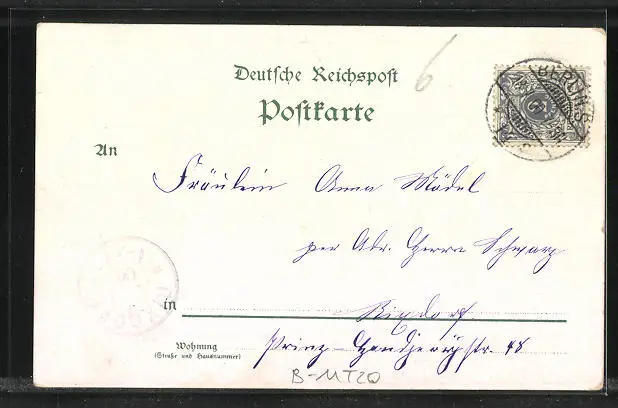 Deutsche Reichspost
Postkarte
6
BERLIN.S.
An
Fräulein Anna Mädel
per Adr. Herrn Schwarz
in Rixdorf
Wohnung
(Straße und Hausnummer)
Prinz-Handjerystr. 48
B-MT20